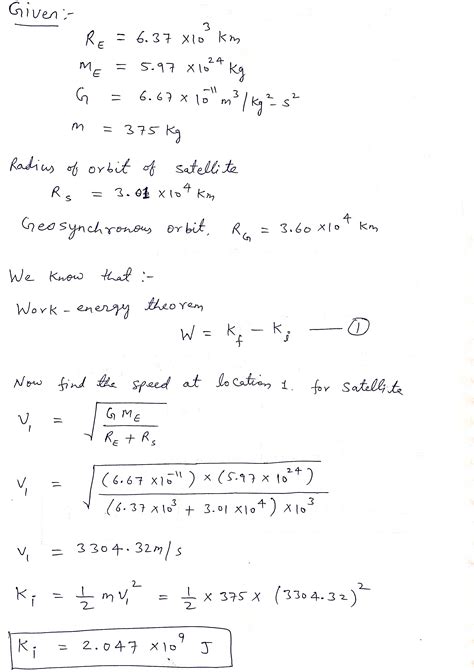 Given:-
R_E = 6.37 ×10^3 Km
M_E = 5.97 ×10^24 Kg
G = 6.67 × 10^-11 m^3/Kg^2-s^2
m = 375 Kg
Radius of orbit of satellite
R_s = 3.01 ×10^4 Km
Geosynchronous orbit, R_G = 3.60 ×10^4 Km
We know that :-
Work-energy theorem
W = K_f - K_i —— ①
Now find the speed at location 1. for satellite
V_1 = √(G M_E / (R_E + R_s))
V_1 = √((6.67 ×10^-11) × (5.97 × 10^24) / ((6.37 ×10^3 + 3.01 ×10^4) ×10^3))
V_1 = 3304.32 m/s
K_i = 1/2 m V_1^2 = 1/2 × 375 × (3304.32)^2
K_i = 2.047 ×10^9 J